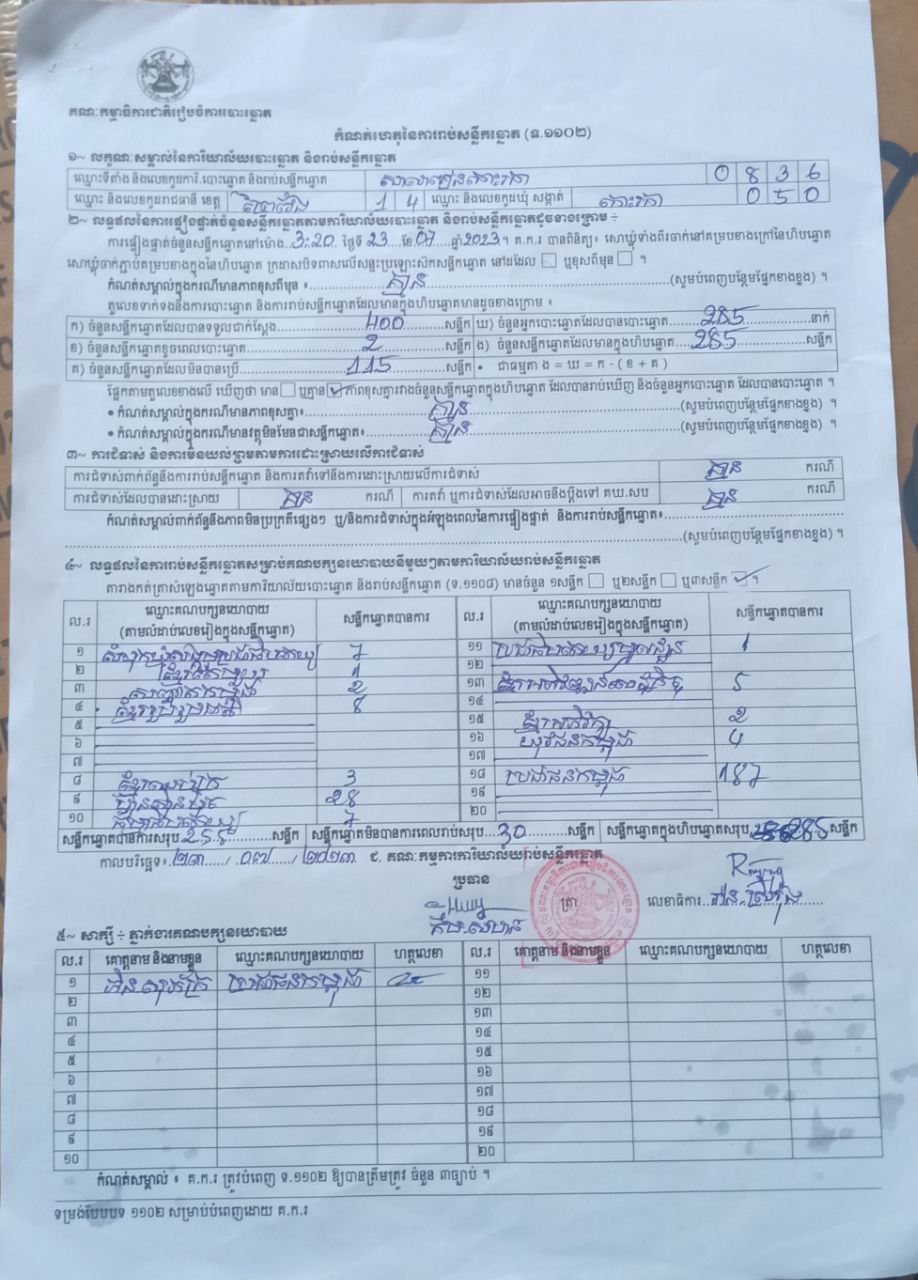 គណៈកម្មាធិការជាតិរៀបចំការបោះឆ្នោត
កំណត់ហេតុនៃការរាប់សន្លឹកឆ្នោត (ទ.១១០២)
១~ លក្ខណៈសម្គាល់នៃការិយាល័យបោះឆ្នោត និងរាប់សន្លឹកឆ្នោត
ឈ្មោះទីតាំង និងលេខកូដការិ.បោះឆ្នោត និងរាប់សន្លឹកឆ្នោត 0 8 3 6
ឈ្មោះ និងលេខកូដរាជធានី ខេត្ត ព្រៃវែង 1 4 ឈ្មោះ និងលេខកូដឃុំ សង្កាត់ 0 5 0
២~ លទ្ធផលនៃការផ្ទៀងផ្ទាត់ចំនួនសន្លឹកឆ្នោតតាមការិយាល័យបោះឆ្នោត និងរាប់សន្លឹកឆ្នោតដូចខាងក្រោម ÷
ការផ្ទៀងផ្ទាត់ចំនួនសន្លឹកឆ្នោតនៅម៉ោង..3:20. ថ្ងៃទី 23 ខែ 07 ឆ្នាំ 2023។ គ.ក.រ បានពិនិត្យ៖ សោឃ្លុំទាំងពីរចាក់នៅគម្របខាងក្រៅនៃហិបឆ្នោត
សោឃ្លុំចាក់ភ្ជាប់គម្របខាងក្នុងនៃហិបឆ្នោត ក្រដាសបិទពាសលើសន្ទះប្រឡោះស៊កសន្លឹកឆ្នោត នៅដដែល ☐ ឬខុសពីមុន ☐ ។
កំណត់សម្គាល់ក្នុងករណីមានភាពខុសពីមុន ៖ គ្មាន (សូមបំពេញបន្ថែមផ្នែកខាងខ្នង) ។
តួលេខទាក់ទងនឹងការបោះឆ្នោត និងការរាប់សន្លឹកឆ្នោតដែលមានក្នុងហិបឆ្នោតមានដូចខាងក្រោម ៖
ក) ចំនួនសន្លឹកឆ្នោតដែលបានទទួលជាក់ស្តែង 400 សន្លឹក ឃ) ចំនួនអ្នកបោះឆ្នោតដែលបានបោះឆ្នោត 285 នាក់
ខ) ចំនួនសន្លឹកឆ្នោតខូចពេលបោះឆ្នោត 2 សន្លឹក ង) ចំនួនសន្លឹកឆ្នោតដែលមានក្នុងហិបឆ្នោត 285 សន្លឹក
គ) ចំនួនសន្លឹកឆ្នោតដែលមិនបានប្រើ 115 សន្លឹក • ជាធម្មតា ង = ឃ = ក - ( ខ + គ )
ផ្អែកតាមតួលេខខាងលើ ឃើញថា មាន ☐ ឬគ្មាន ☑ ភាពខុសគ្នារវាងចំនួនសន្លឹកឆ្នោតក្នុងហិបឆ្នោត ដែលបានរាប់ឃើញ និងចំនួនអ្នកបោះឆ្នោត ដែលបានបោះឆ្នោត ។
• កំណត់សម្គាល់ក្នុងករណីមានភាពខុសគ្នា៖ គ្មាន (សូមបំពេញបន្ថែមផ្នែកខាងខ្នង) ។
• កំណត់សម្គាល់ក្នុងករណីមានវត្ថុមិនមែនជាសន្លឹកឆ្នោត៖ គ្មាន (សូមបំពេញបន្ថែមផ្នែកខាងខ្នង) ។
៣~ ការជំទាស់ និងការមិនយល់ព្រមតាមការដោះស្រាយលើការជំទាស់
ការជំទាស់ពាក់ព័ន្ធនឹងការរាប់សន្លឹកឆ្នោត និងការតវ៉ាទៅនឹងការដោះស្រាយលើការជំទាស់ គ្មាន ករណី
ការជំទាស់ដែលបានដោះស្រាយ គ្មាន ករណី ការតវ៉ា ឬការជំទាស់ដែលអាចនឹងប្តឹងទៅ គឃ.សប គ្មាន ករណី
កំណត់សម្គាល់ពាក់ព័ន្ធនឹងភាពមិនប្រក្រតីផ្សេងៗ ឬ/និងការជំទាស់ក្នុងអំឡុងពេលនៃការផ្ទៀងផ្ទាត់ និងការរាប់សន្លឹកឆ្នោត៖
(សូមបំពេញបន្ថែមផ្នែកខាងខ្នង) ។
៤~ លទ្ធផលនៃការរាប់សន្លឹកឆ្នោតសម្រាប់គណបក្សនយោបាយនីមួយៗតាមការិយាល័យរាប់សន្លឹកឆ្នោត
តារាងកត់ត្រាសំឡេងឆ្នោតតាមការិយាល័យបោះឆ្នោត និងរាប់សន្លឹកឆ្នោត (ទ.១១០៨) មានចំនួន ១សន្លឹក ☐ ឬ២សន្លឹក ☐ ឬ៣សន្លឹក ☑ ។
ល.រ ឈ្មោះគណបក្សនយោបាយ (តាមលំដាប់លេខរៀងក្នុងសន្លឹកឆ្នោត) សន្លឹកឆ្នោតបានការ ល.រ ឈ្មោះគណបក្សនយោបាយ (តាមលំដាប់លេខរៀងក្នុងសន្លឹកឆ្នោត) សន្លឹកឆ្នោតបានការ
១ 7 ១១ 1
២ 1 ១២
៣ 2 ១៣ 5
៤ 8 ១៤
៥ ១៥ 2
៦ ១៦ យុវជនកម្ពុជា 4
៧ ១៧
៨ 3 ១៨ ប្រជាជនកម្ពុជា 187
៩ 28 ១៩
១០ 7 ២០
សន្លឹកឆ្នោតបានការសរុប 255 សន្លឹក សន្លឹកឆ្នោតមិនបានការពេលរាប់សរុប 30 សន្លឹក សន្លឹកឆ្នោតក្នុងហិបឆ្នោតសរុប 285 សន្លឹក
កាលបរិច្ឆេទ៖ ២៣ / ០៧ / ២០២៣ ជ. គណៈកម្មការការិយាល័យរាប់សន្លឹកឆ្នោត
ប្រធាន ត្រា លេខាធិការ
៥~ សាក្សី ÷ ភ្នាក់ងារគណបក្សនយោបាយ
ល.រ គោត្តនាម និងនាមខ្លួន ឈ្មោះគណបក្សនយោបាយ ហត្ថលេខា ល.រ គោត្តនាម និងនាមខ្លួន ឈ្មោះគណបក្សនយោបាយ ហត្ថលេខា
១ ប្រជាជនកម្ពុជា ១១
២ ១២
៣ ១៣
៤ ១៤
៥ ១៥
៦ ១៦
៧ ១៧
៨ ១៨
៩ ១៩
១០ ២០
កំណត់សម្គាល់ ៖ គ.ក.រ ត្រូវបំពេញ ទ.១១០២ ឱ្យបានត្រឹមត្រូវ ចំនួន ៣ច្បាប់ ។
ទម្រង់បែបបទ ១១០២ សម្រាប់បំពេញដោយ គ.ក.រ